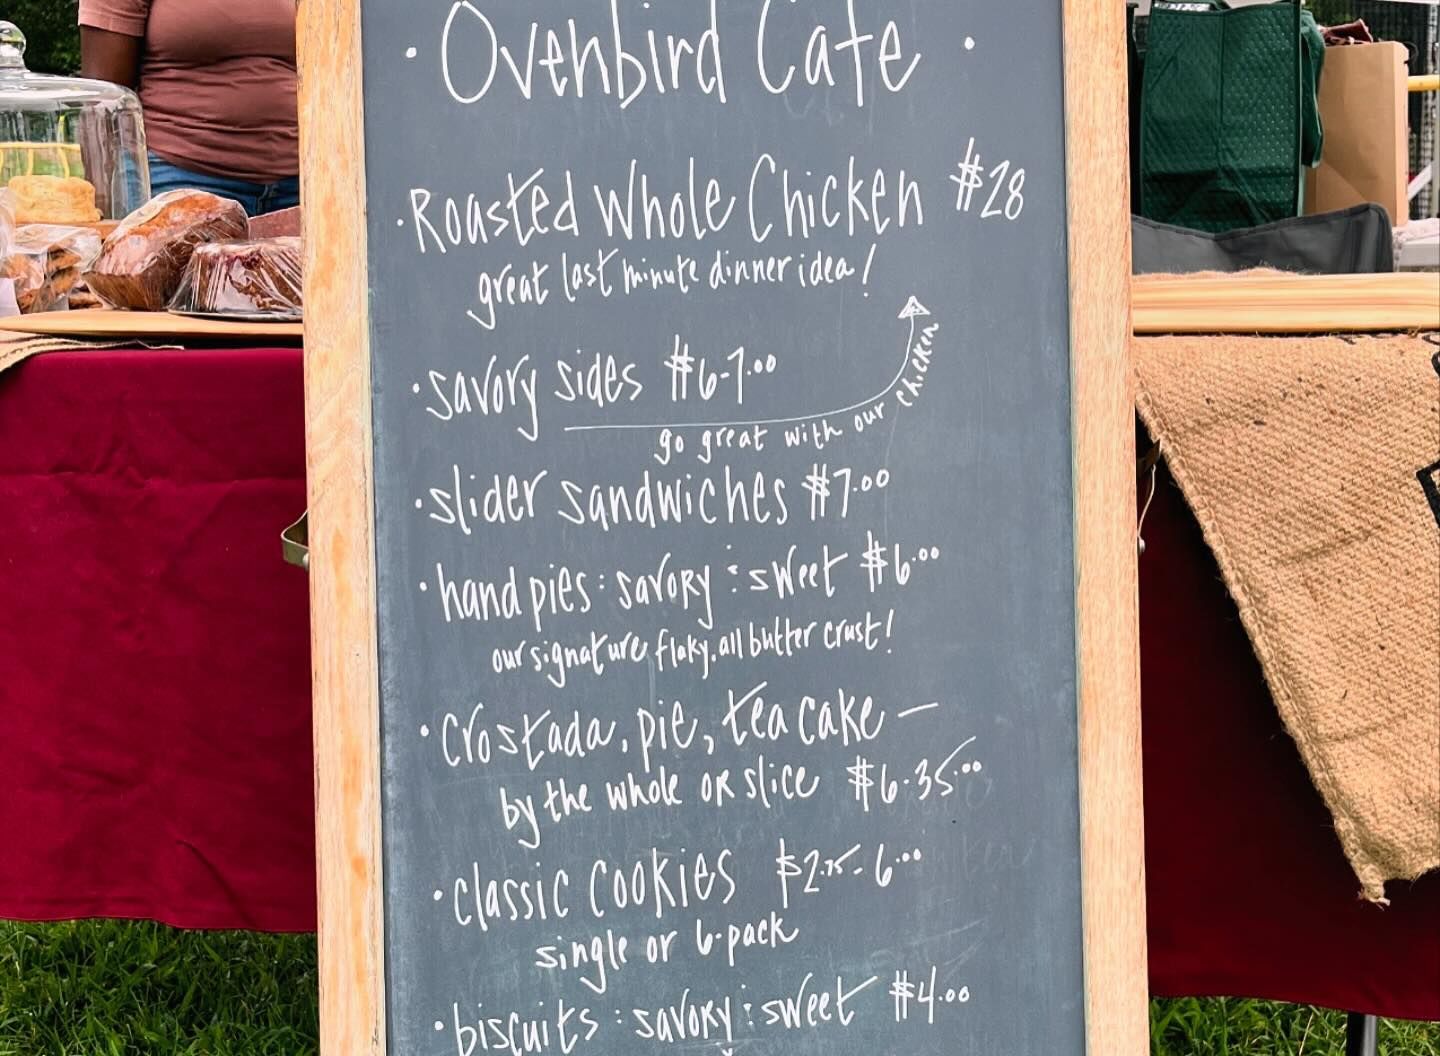 · Ovenbird Cafe ·
· Roasted Whole Chicken $28
great last minute dinner idea!
· savory sides $6-7.00
go great with our chicken
· slider sandwiches $7.00
· hand pies: savory & sweet $6.00
our signature flaky, all butter crust!
· Crostada, pie, tea cake —
by the whole or slice $6-35.00
· classic cookies $2.75-6.00
single or 6-pack
· biscuits: savory & sweet $4.00